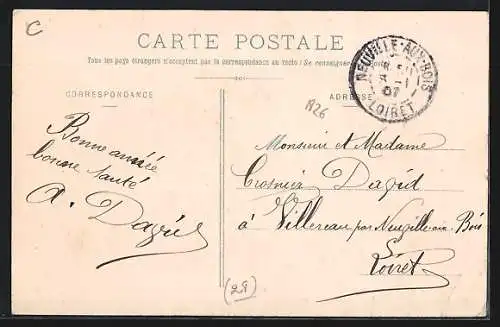 C
CARTE POSTALE
Tous les pays étrangers n'acceptent pas la correspondance au recto (Se renseigner à la Poste)
CORRESPONDANCE
ADRESSE
NEUVILLE-AUX-BOIS
07
LOIRET
R26
Bonne année
bonne santé
A. Dazid
Monsieur et Madame
Dazid
à Villereau par Neuville aux Bois
Loiret
(29)